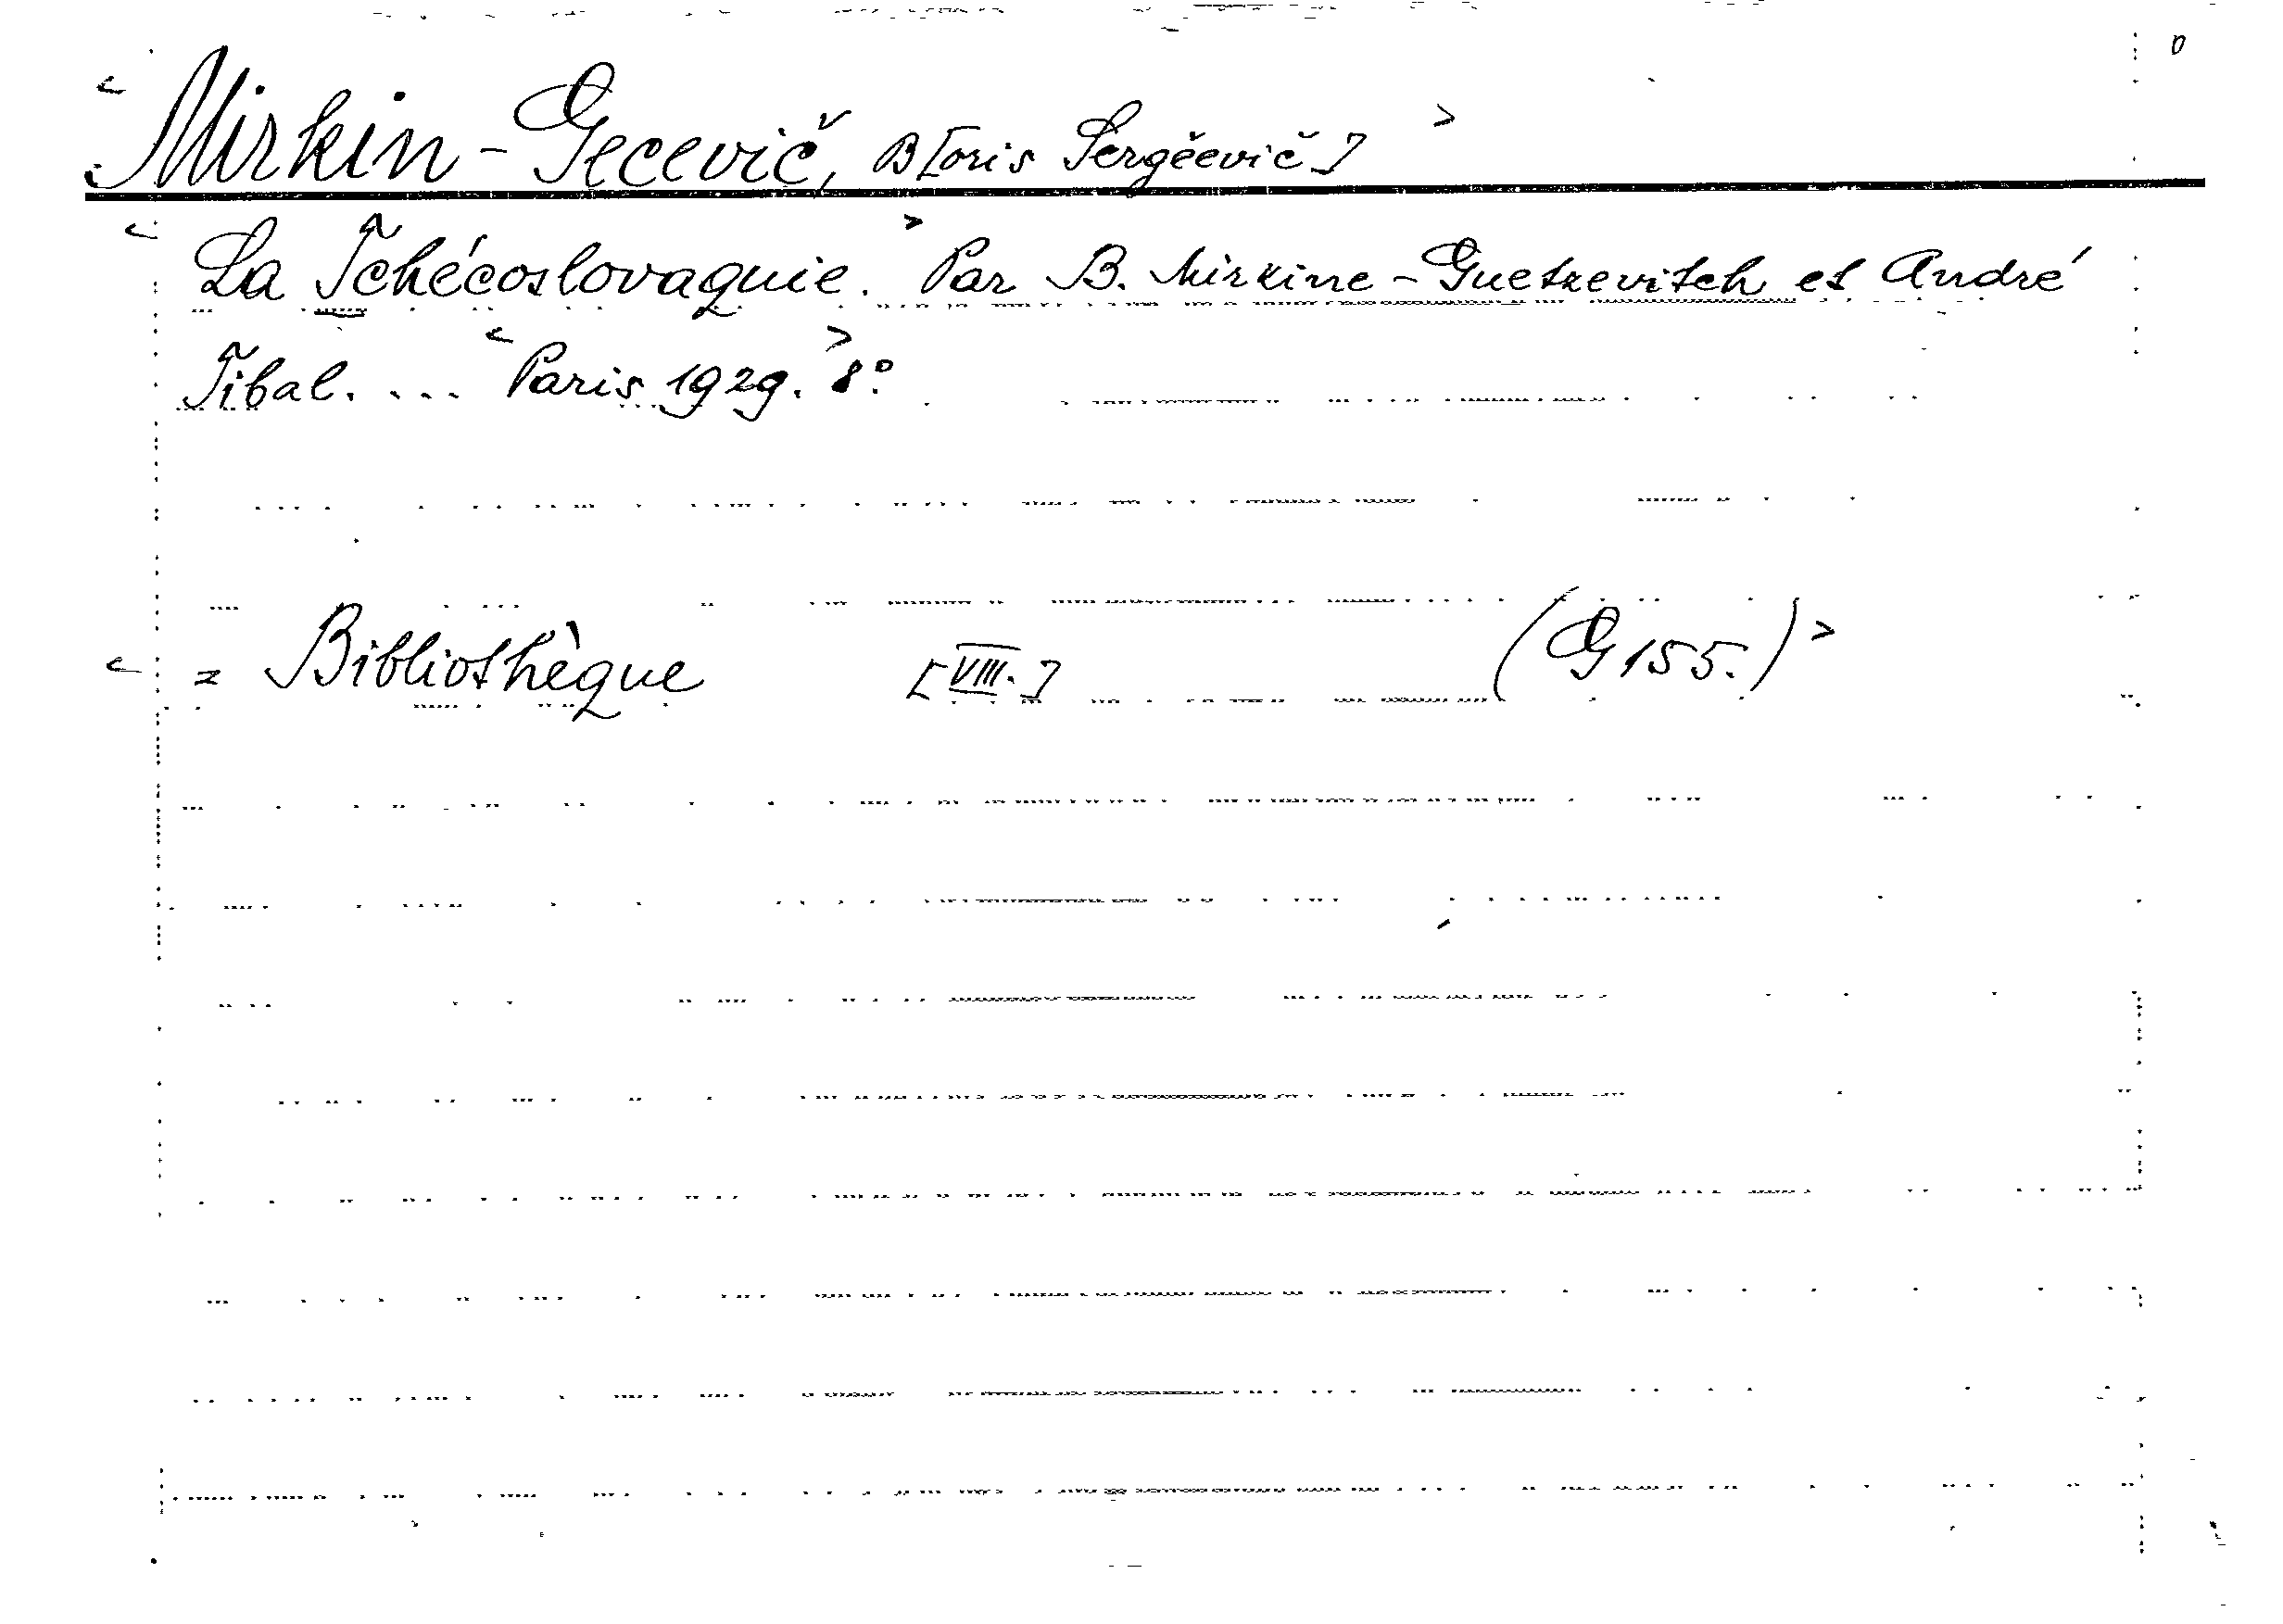 < Mirkin-Gecevič, B[oris Sergěevič] >
< La Tchécoslovaquie. > Par B. Mirkine-Guetzevitch et André
Tibal. ... < Paris 1929. > 8°.
< = Bibliothèque [VIII.] (G 155.) >